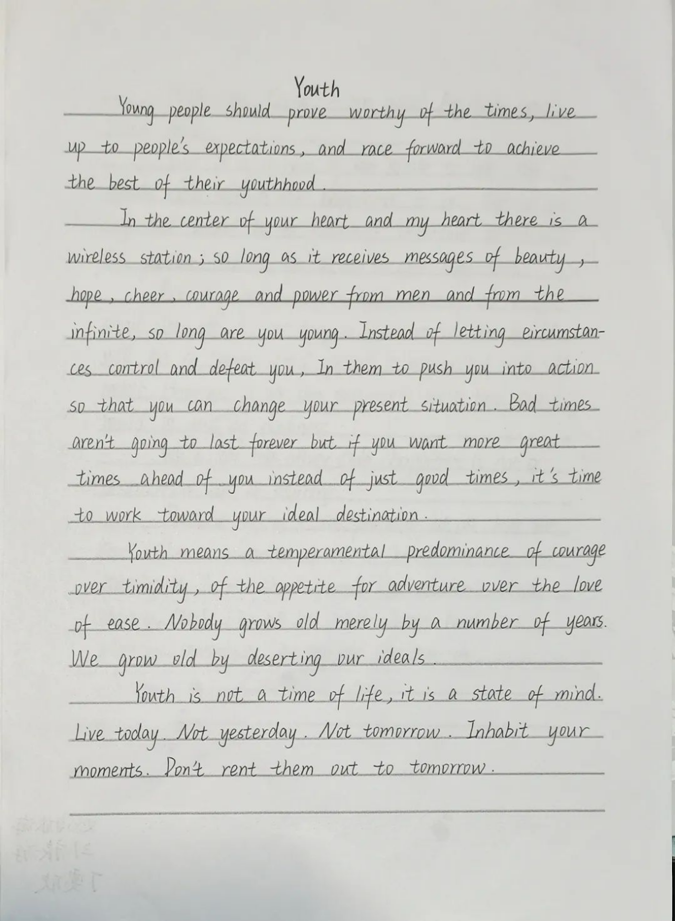 Youth
Young people should prove worthy of the times, live
up to people's expectations, and race forward to achieve
the best of their youthhood.
In the center of your heart and my heart there is a
wireless station; so long as it receives messages of beauty,
hope, cheer, courage and power from men and from the
infinite, so long are you young. Instead of letting eircumstan-
ces control and defeat you, In them to push you into action
so that you can change your present situation. Bad times
aren't going to last forever but if you want more great
times ahead of you instead of just good times, it's time
to work toward your ideal destination.
Youth means a temperamental predominance of courage
over timidity, of the appetite for adventure over the love
of ease. Nobody grows old merely by a number of years.
We grow old by deserting our ideals.
Youth is not a time of life, it is a state of mind.
Live today. Not yesterday. Not tomorrow. Inhabit your
moments. Don't rent them out to tomorrow.